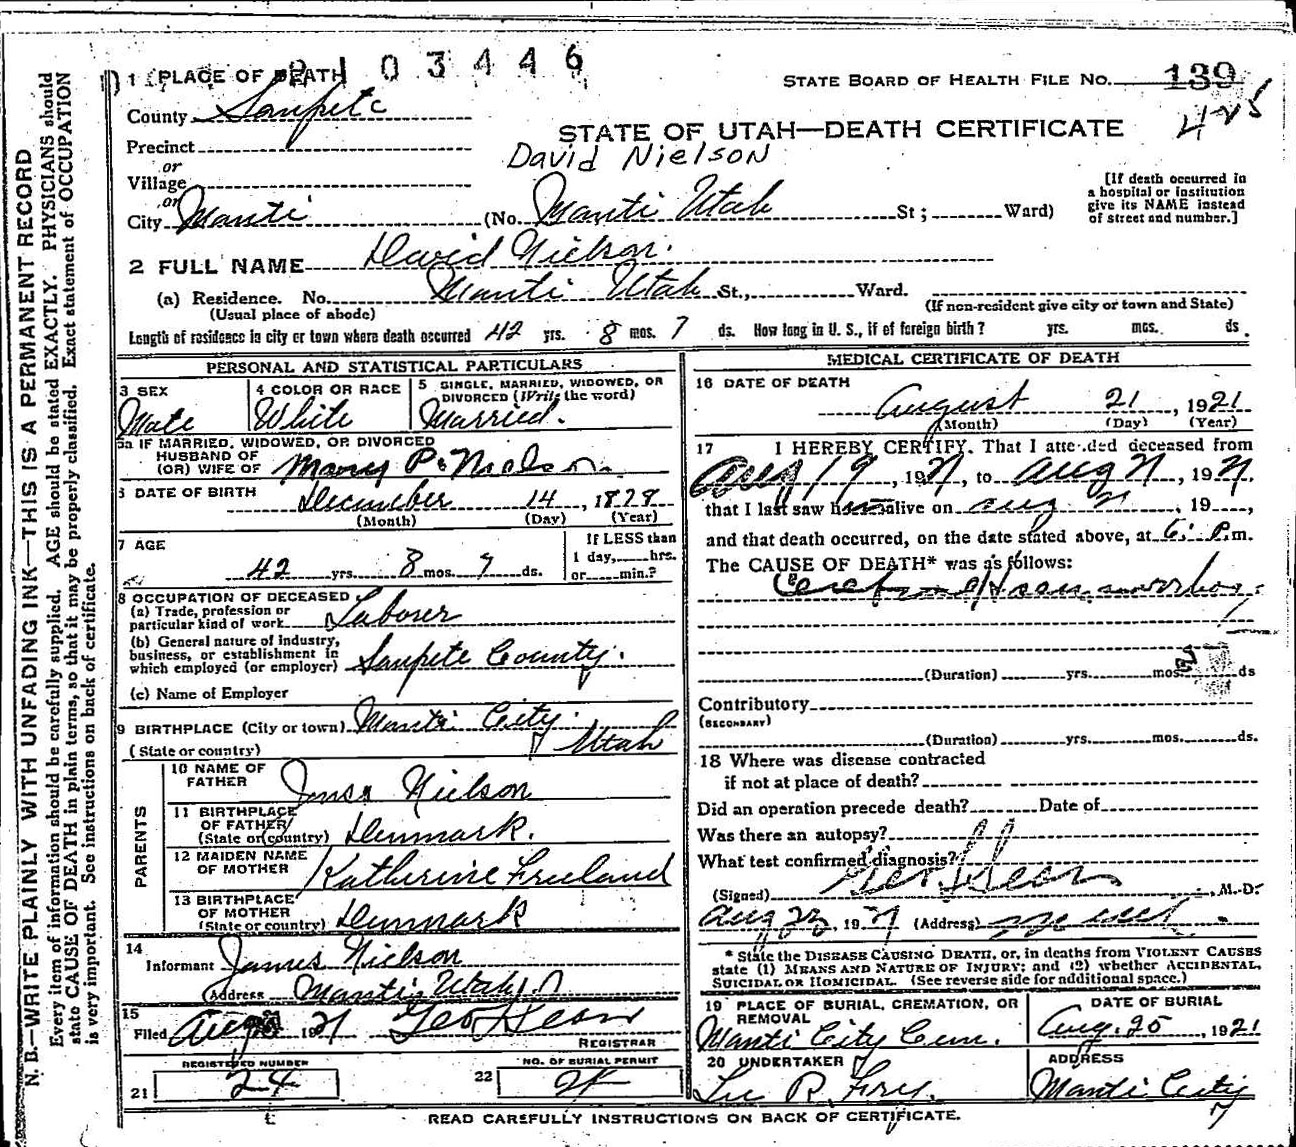 2103446
1 PLACE OF DEATH
STATE BOARD OF HEALTH FILE NO. 139
425
County Sanpete
STATE OF UTAH—DEATH CERTIFICATE
David Nielson
Precinct
or
Village
or
City Manti (No. Manti Utah St; Ward)
[If death occurred in a hospital or institution give its NAME instead of street and number.]
2 FULL NAME David Nielson.
(a) Residence. No. Manti Utah St., Ward.
(Usual place of abode) (If non-resident give city or town and State)
Length of residence in city or town where death occurred 42 yrs. 8 mos. 7 ds. How long in U. S., if of foreign birth? yrs. mos. ds
PERSONAL AND STATISTICAL PARTICULARS
3 SEX Male
4 COLOR OR RACE White
5 SINGLE, MARRIED, WIDOWED, OR DIVORCED (Write the word) Married.
5a IF MARRIED, WIDOWED, OR DIVORCED
HUSBAND OF
(OR) WIFE OF Mary P. Nielson
6 DATE OF BIRTH December 14, 1878
(Month) (Day) (Year)
7 AGE 42 yrs. 8 mos. 7 ds.
If LESS than
1 day, hrs.
or min.?
8 OCCUPATION OF DECEASED
(a) Trade, profession or
particular kind of work Laborer
(b) General nature of industry,
business, or establishment in
which employed (or employer) Sanpete County.
(c) Name of Employer
9 BIRTHPLACE (City or town) Manti City.
(State or country) Utah
PARENTS
10 NAME OF
FATHER Jens Nielson
11 BIRTHPLACE
OF FATHER
(State or country) Denmark.
12 MAIDEN NAME
OF MOTHER Katherine Freeland
13 BIRTHPLACE
OF MOTHER
(State or country) Denmark
14
Informant James Nielson
(Address Manti Utah
15
Filed Aug 1921 Geo
REGISTRAR
REGISTERED NUMBER
21 24
NO. OF BURIAL PERMIT
22
MEDICAL CERTIFICATE OF DEATH
16 DATE OF DEATH
August 21, 1921
(Month) (Day) (Year)
17 I HEREBY CERTIFY. That I attended deceased from
Aug 19, 1921, to Aug 21, 1921,
that I last saw him alive on Aug 21, 19,
and that death occurred, on the date stated above, at 6. P.m.
The CAUSE OF DEATH* was as follows:
Cerebral
(Duration) yrs. mos ds
Contributory
(SECONDARY)
(Duration) yrs. mos. ds.
18 Where was disease contracted
if not at place of death?
Did an operation precede death? Date of
Was there an autopsy?
What test confirmed diagnosis?
(Signed) Geo M.D.
Aug 23, 1921 (Address)
* State the DISEASE CAUSING DEATH, or, in deaths from VIOLENT CAUSES
state (1) MEANS AND NATURE OF INJURY; and (2) whether ACCIDENTAL,
SUICIDAL or HOMICIDAL. (See reverse side for additional space.)
19 PLACE OF BURIAL, CREMATION, OR
REMOVAL
Manti City Cem.
DATE OF BURIAL
Aug. 25, 1921
20 UNDERTAKER
P.
ADDRESS
Manti City
READ CAREFULLY INSTRUCTIONS ON BACK OF CERTIFICATE.
N. B.—WRITE PLAINLY WITH UNFADING INK—THIS IS A PERMANENT RECORD
Every item of information should be carefully supplied. AGE should be stated EXACTLY. PHYSICIANS should
state CAUSE OF DEATH in plain terms, so that it may be properly classified. Exact statement of OCCUPATION
is very important. See instructions on back of certificate.